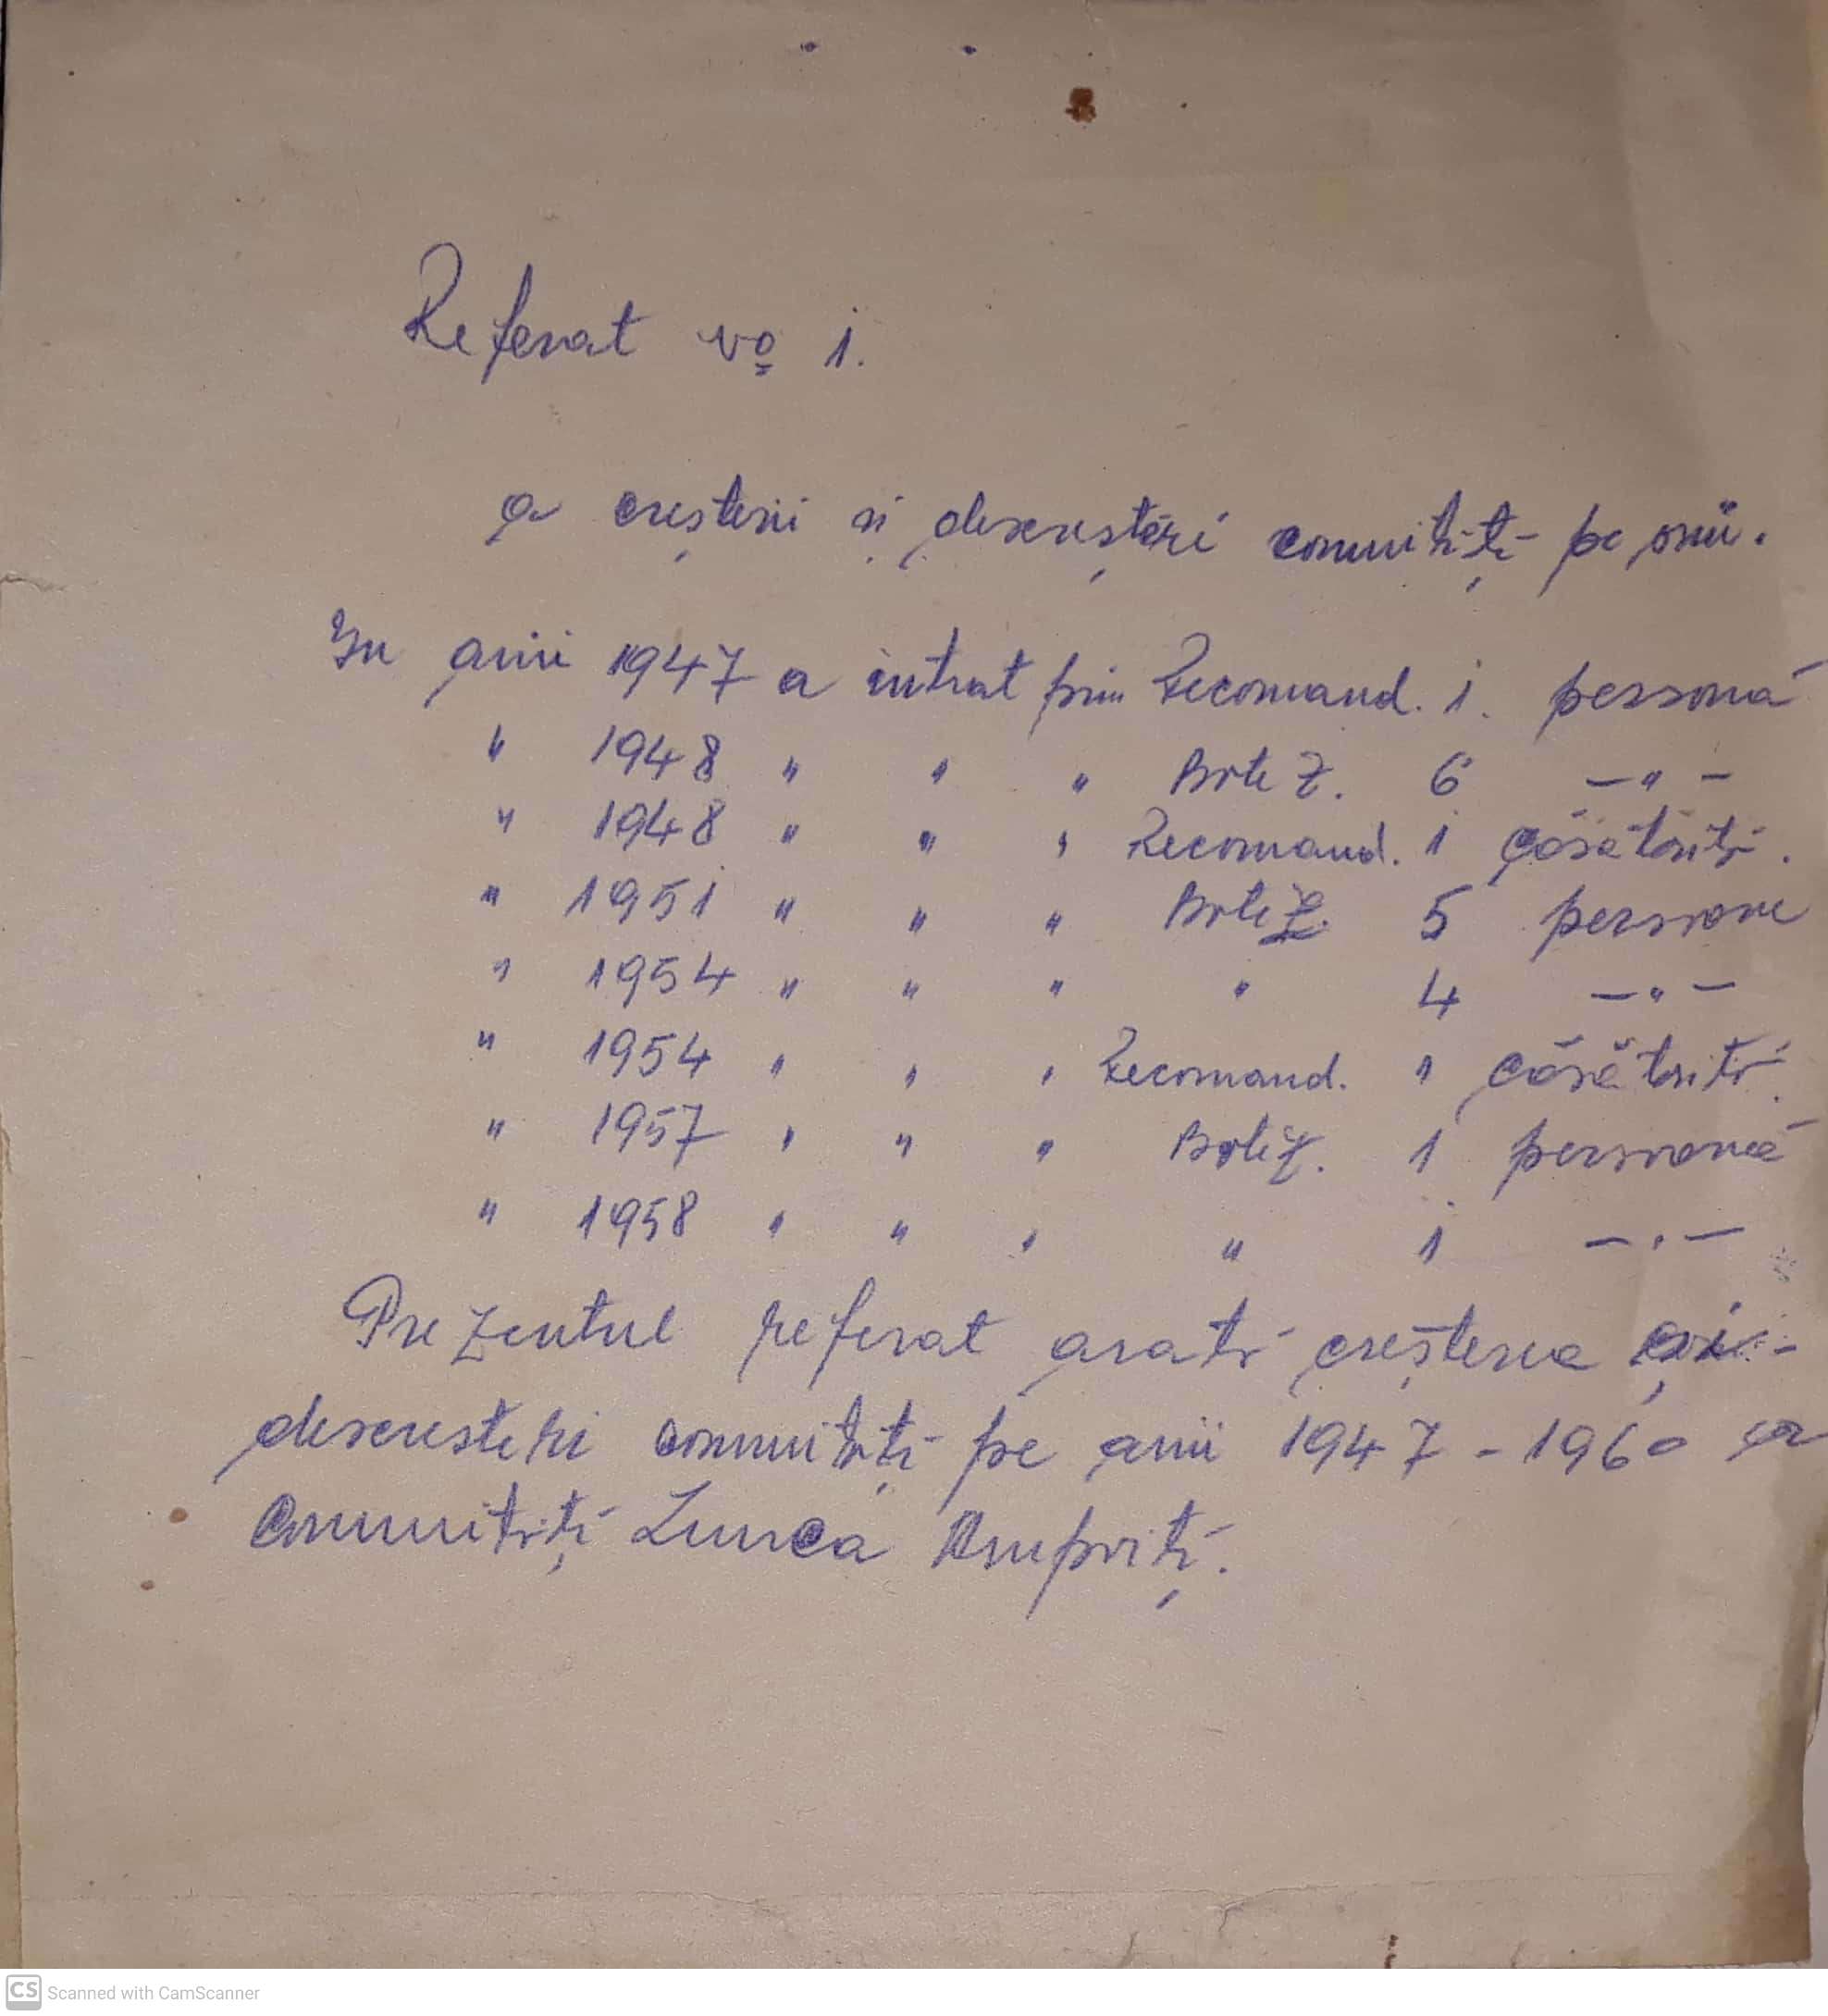 Referat No 1.
a creșterii și descreșterei comunități pe anii.
In anii 1947 a intrat prin Recomand. 1. persoană
" 1948 " " " Botez. 6 —"—
" 1948 " " " Recomand. 1 căsătorită.
" 1951 " " " Botez. 5 persoane
" 1954 " " " " 4 —"—
" 1954 " " " Recomand. 1 căsătorită.
" 1957 " " " Botez. 1 persoană
" 1958 " " " " 1 —"—
Prezentul referat arată creșterea și-
descresteri comunități pe anii 1947 - 1960 a
Comunități Lunca
CS Scanned with CamScanner